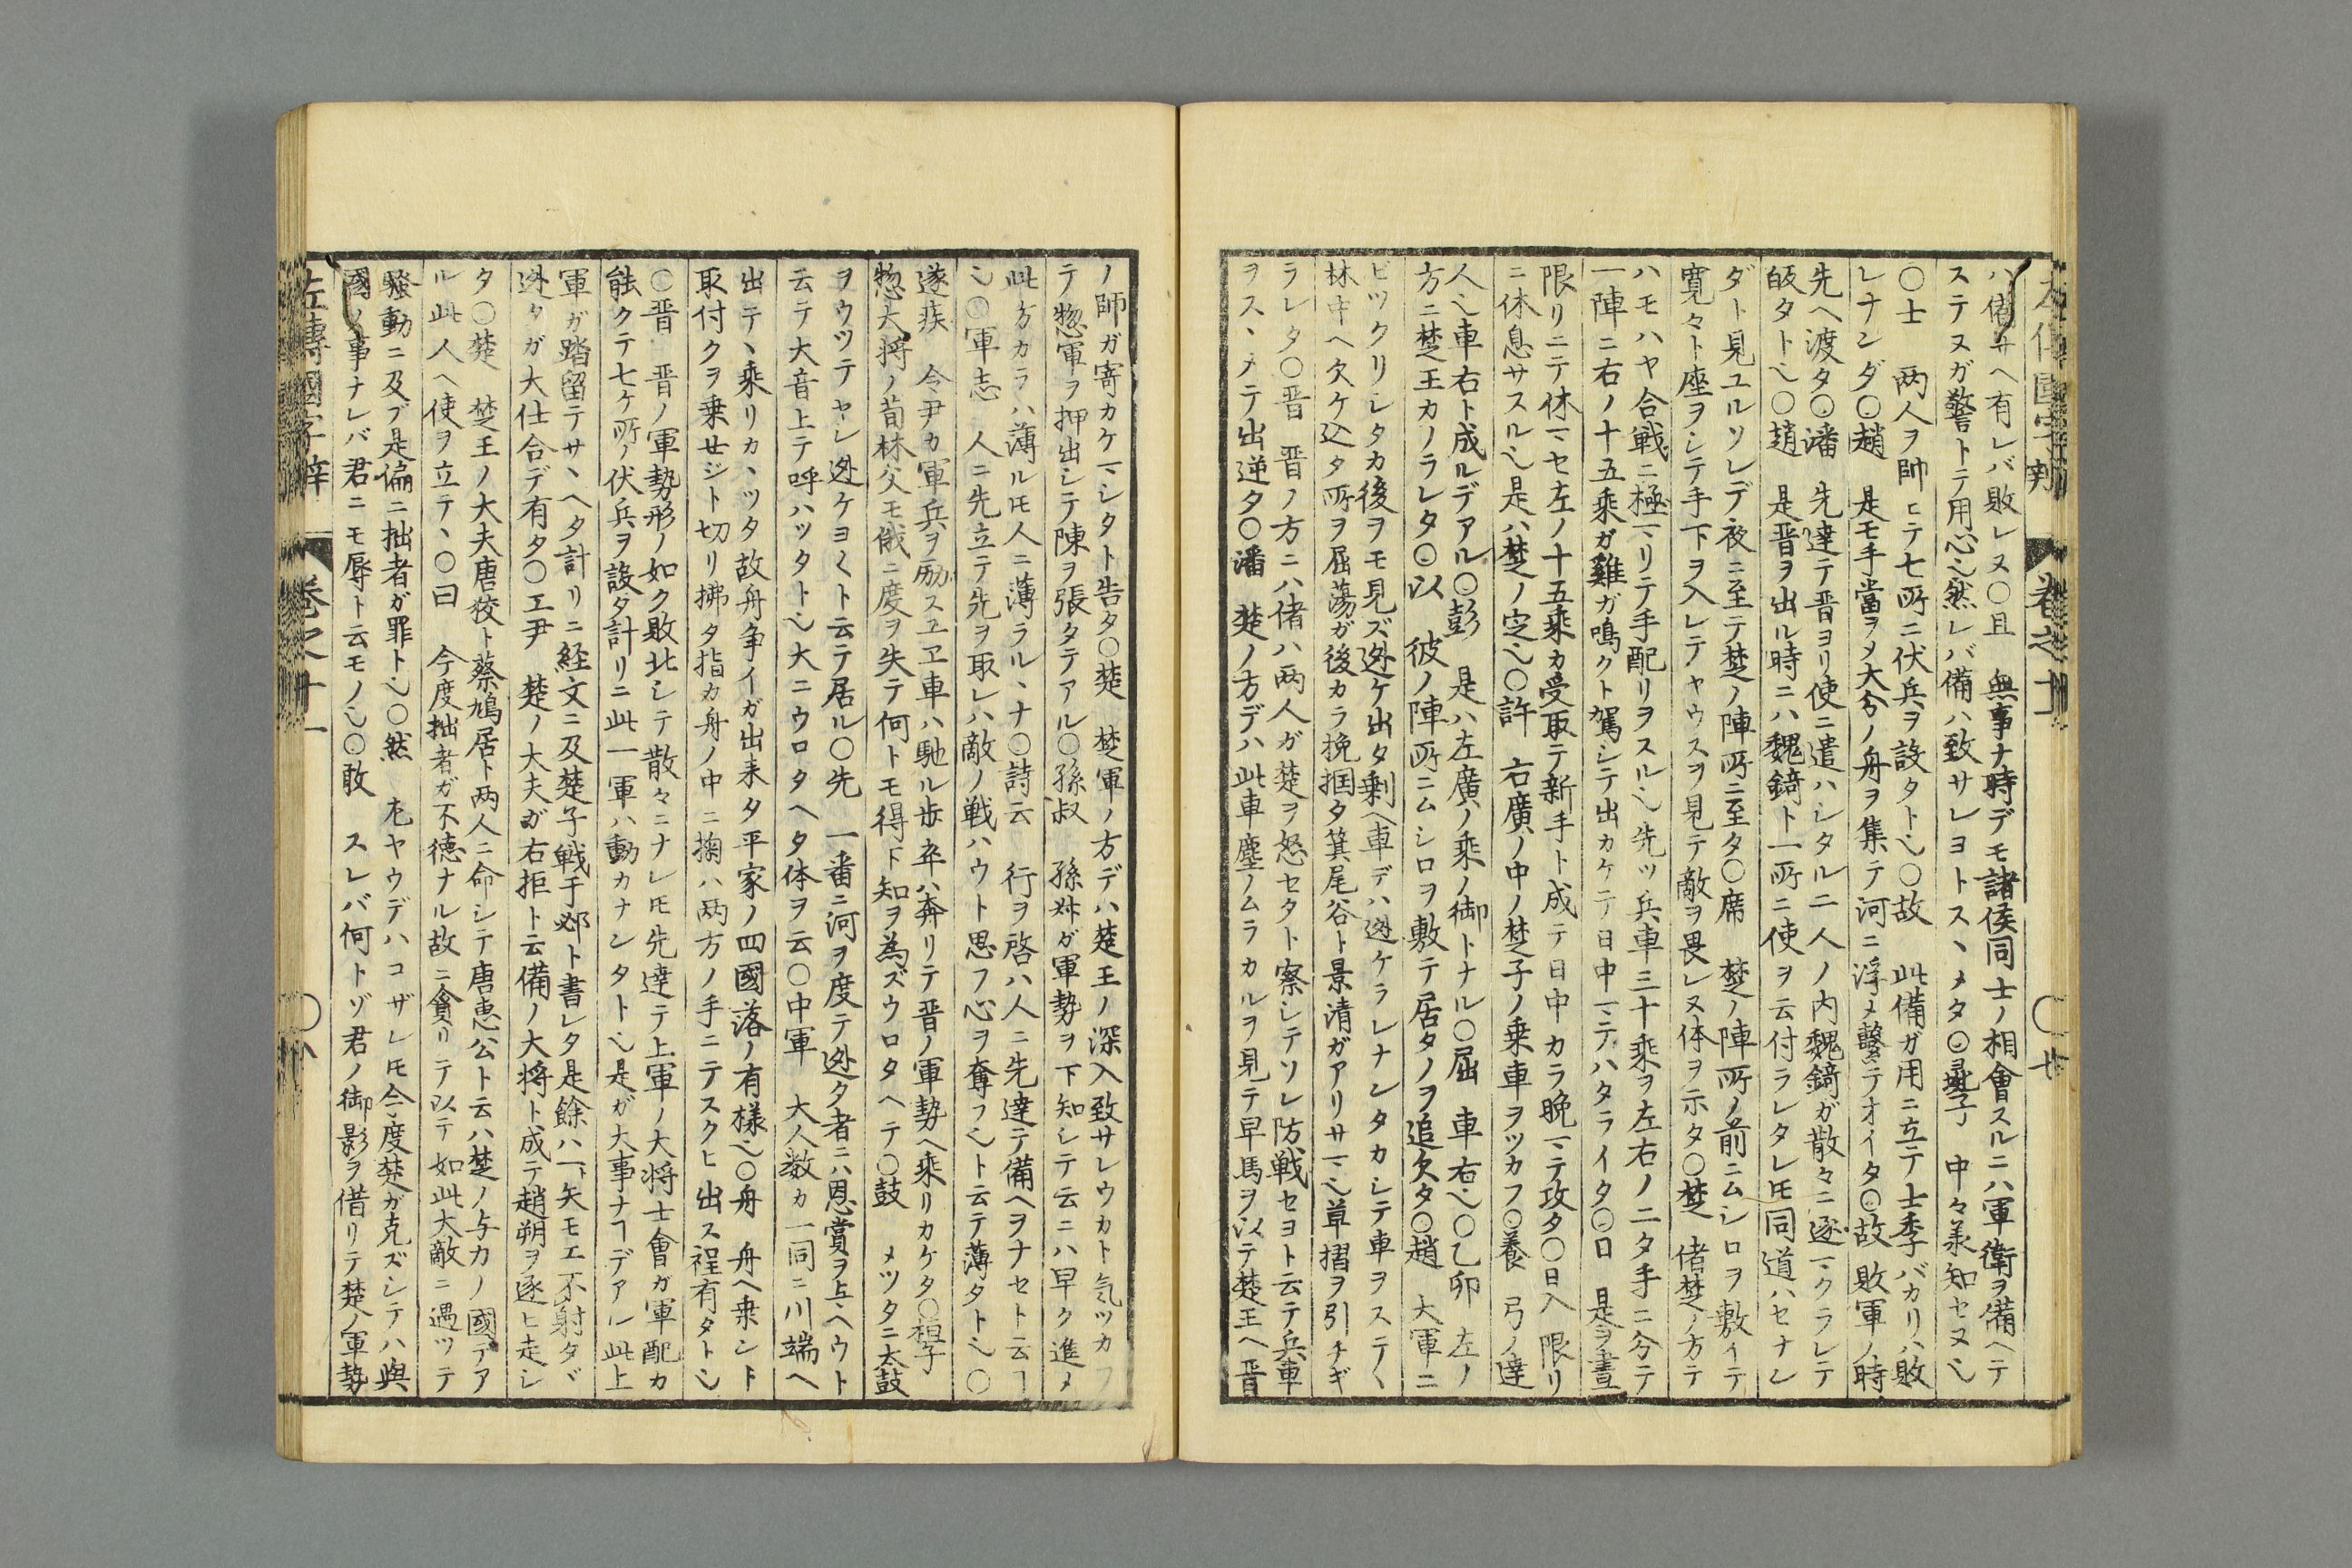 ハ備サヘ有レバ敗レヌ〇且　無事ナ時デモ諸侯同士ノ相會スルニハ軍衛ヲ備ヘテ
ステヌガ警トテ用心也然レバ備ハ致サレヨトスヽメタ〇彘子　中々羕知セヌ也
〇士　両人ヲ帥ヒテ七所ニ伏兵ヲ設タト也〇故　此備ガ用ニ立テ士季バカリハ敗
レナンダ〇趙　是モ手當ヲメ大分ノ舟ヲ集テ河ニ浮メ繋テオイタ〇故　敗軍ノ時
先ヘ渡タ〇潘　先達テ晋ヨリ使ニ遣ハシタル二人ノ内魏錡ガ散々ニ逐マクラレテ
皈タト也〇趙　是晋ヲ出ル時ニハ魏錡ト一所ニ使ヲ云付ラレタレ𪜈同道ハセナン
ダト見ユルソレデ夜ニ至テ楚ノ陣所ニ至タ〇席　楚ノ陣所ノ前ニムシロヲ敷イテ
寛々ト座ヲシテ手下ヲ入レテヤウスヲ見テ敵ヲ畏レヌ体ヲ示タ〇楚　偖楚ノ方テ
ハモハヤ合戦ニ極マリテ手配リヲスル也先ツ兵車三十乘ヲ左右ノ二タ手ニ分テ
一陣ニ右ノ十五乘ガ雞ガ鳴クト駕シテ出カケテ日中マテハタライタ〇日　是ヲ晝
限リニテ休マセ左ノ十五乘カ受取テ新手ト成テ日中カラ晩マテ攻タ〇日入　限リ
ニ休息サスル也是ハ楚ノ定也〇許　右廣ノ中ノ楚子ノ乗車ヲツカフ〇養　弓ノ達
人也車右ト成ルデアル〇彭　是ハ左廣ノ乘ノ御トナル〇屈　車右也〇乙卯　左ノ
方ニ楚王カノラレタ〇以　彼ノ陣所ニムシロヲ敷テ居タノヲ追欠タ〇趙　大軍ニ
ビツクリシタカ後ヲモ見ズ迯ケ出タ剰ヘ車デハ迯ケラレナンタカシテ車ヲステヽ
林中ヘ欠ケ込タ所ヲ屈蕩ガ後カラ挽掴タ箕尾谷ト景清ガアリサマ也草摺ヲ引チギ
ラレタ〇晋　晋ノ方ニハ偖ハ両人ガ楚ヲ怒セタト察シテソレ防戦セヨト云テ兵車
ヲスヽメテ出逆タ〇潘　楚ノ方デハ此車塵ノムラカルヲ見テ早馬ヲ以テ楚王ヘ晋
ノ師ガ寄カケマシタト告タ〇楚　楚軍ノ方デハ楚王ノ深入致サレウカト気ツカフ
テ惣軍ヲ押出シテ陳ヲ張タテアル〇孫叔　孫叔ガ軍勢ヲ下知シテ云ニハ早ク進メ
此方カラハ薄ル𪜈人ニ薄ラルヽナ〇詩云　行ヲ啓ハ人ニ先達テ備ヘヲナセト云ヿ
也〇軍志　人ニ先立テ先ヲ取レハ敵ノ戦ハウト思フ心ヲ奪フ也ト云テ薄タト也〇
遂疾　今尹カ軍兵ヲ励スユヱ車ハ馳ル歩卒ハ奔リテ晋ノ軍勢ヘ乘リカケタ〇桓子
惣大将ノ荀林父モ俄ニ度ヲ失テ何トモ得下知ヲ為ズウロタヘテ〇鼓　メツタニ太鼓
ヲウツテヤレ迯ケヨ〱ト云テ居ル〇先　一番ニ河ヲ度テ迯タ者ニハ恩賞ヲ与ヘウト
云テ大音上テ呼ハツタト也大ニウロタヘタ体ヲ云〇中軍　大人数カ一同ニ川端ヘ
出テヽ乘リカヽツタ故舟争イガ出来タ平家ノ四國落ノ有様也〇舟　舟ヘ乗シト
取付クヲ乗セジト切リ拂タ指カ舟ノ中ニ掬ハ両方ノ手ニテスクヒ出ス程有タト也
〇晋　晋ノ軍勢形ノ如ク敗北シテ散々ニナレ𪜈先達テ上軍ノ大将士會ガ軍配カ
能クテ七ケ所ノ伏兵ヲ設タ計リニ此一軍ハ動カナンタト也是ガ大事ナヿデアル此上
軍ガ踏留テサヽヘタ計リニ経文ニ及楚子戦于邲ト書レタ是餘ハ一矢モエ不射タヾ
迯タガ大仕合デ有タ〇工尹　楚ノ大夫ガ右拒ト云備ノ大将ト成テ趙朔ヲ逐ヒ走シ
タ〇楚　楚王ノ大夫唐狡ト蔡鳩居ト両人ニ命シテ唐惠公ト云ハ楚ノ与カノ國テア
ル此人ヘ使ヲ立テヽ〇曰　今度拙者ガ不徳ナル故ニ貪リテ以テ如此大敵ニ遇ツテ
騒動ニ及ブ是偏ニ拙者ガ罪ト也〇然　尤ヤウデハコザレ𪜈今度楚ガ克ズシテハ與
國ノ事ナレバ君ニモ辱ト云モノ也〇敢　スレバ何トゾ君ノ御影ヲ借リテ楚ノ軍勢
左傳國字辯　卷之十一